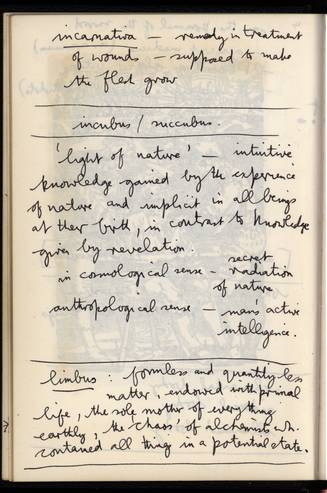 incarnativa – remedy in treatment
of wounds – supposed to make
the flesh grow
incubus / succubus.
'light of nature' – intuitive
knowledge gained by the experience
of nature and implicit in all beings
at their birth, in contrast to knowledge
given by revelation.
in cosmological sense – secret
radiation
of nature
anthropological sense – man's active
intelligence.
limbus : formless and quantity-less
matter, endowed with primal
life, the sole mother of everything
earthly, the 'chaos' of alchemists wh.
contained all things in a potential state.